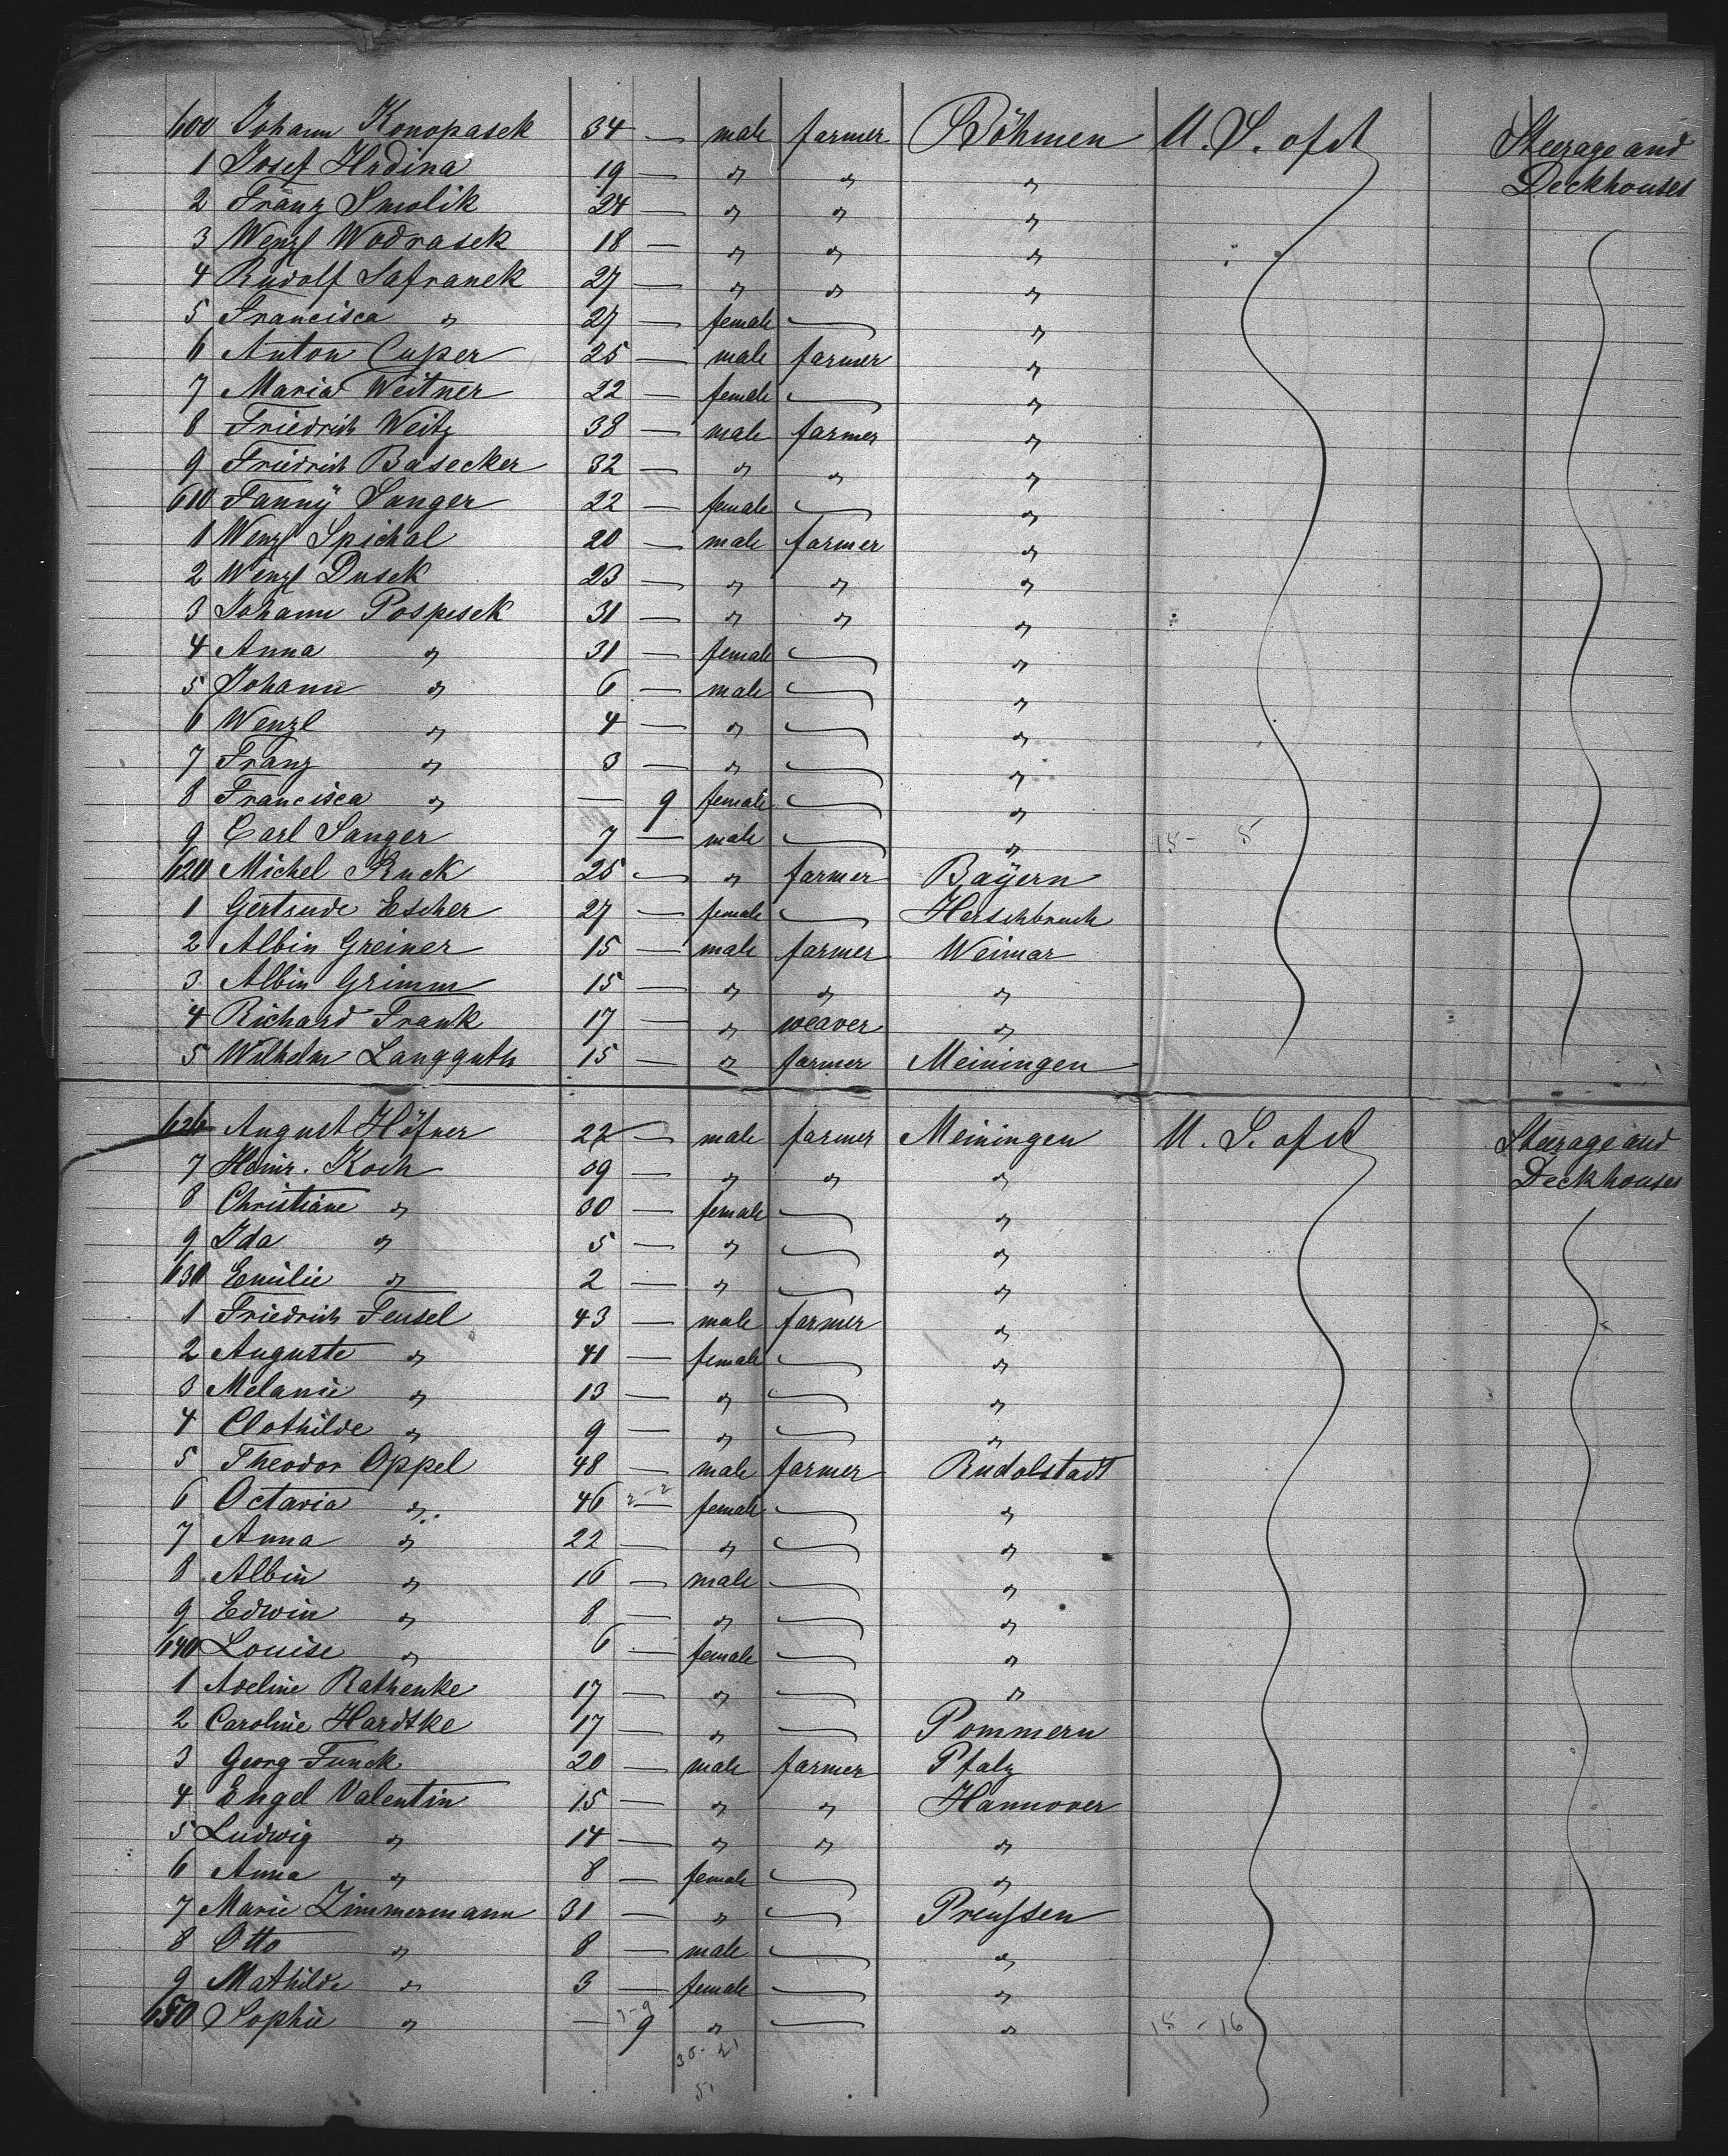 600 Johann Konopasek 34 — male farmer Böhmen U. S. of A Steerage and
1 Josef Hrdina 19 — " " " Deckhouses
2 Franz Smolik 24 — " " "
3 Wenzl Wodrasek 18 — " " "
4 Rudolf Safranek 27 — " " "
5 Francisca " 27 — female — "
6 Anton Cuper 25 — male farmer "
7 Maria Weitner 22 — female — "
8 Friedrich Weitz 38 — male farmer "
9 Friedrich Basecker 32 — " " "
610 Fanny Sanger 22 — female — "
1 Wenzl Spichal 20 — male farmer "
2 Wenzl Dusek 23 — " " "
3 Johann Pospesek 31 — " " "
4 Anna " 31 — female — "
5 Johann " 6 — male — "
6 Wenzl " 4 — " — "
7 Franz " 3 — " — "
8 Francisca " — 9 female — "
9 Carl Sanger 7 — male — " 15 - 5
620 Michel Ruck 25 — " farmer Bayern
1 Gertrude Escher 27 — female — Herschbruch
2 Albin Greiner 15 — male farmer Weimar
3 Albin Grimm 15 — " " "
4 Richard Frank 17 — " weaver "
5 Wilhelm Langguth 15 — " farmer Meiningen
626 August Höfner 22 — male farmer Meiningen U. S. of A Steerage and
7 Heinr. Koch 39 — " " " Deckhouses
8 Christiane " 30 — female — "
9 Ida " 5 — " — "
630 Emilie " 2 — " — "
1 Friedrich Feusel 43 — male farmer "
2 Auguste " 41 — female — "
3 Melanie " 13 — " — "
4 Clothilde " 9 — " — "
5 Theodor Oppel 48 — male farmer Rudolstadt
6 Octavia " 46 2-2 — female — "
7 Anna " 22 — " — "
8 Albin " 16 — male — "
9 Edwin " 8 — " — "
640 Louise " 6 — female — "
1 Adeline Rathenke 17 — " — "
2 Caroline Hardtke 17 — " — Pommern
3 Georg Funck 20 — male farmer Pfalz
4 Engel Valentin 15 — " " Hannover
5 Ludwig " 14 — " " "
6 Anna " 8 — female — "
7 Marie Zimmermann 31 — " — Preußen
8 Otto " 8 — male — "
9 Mathilde " 3 — female — "
650 Sophie " — 9 " — " 15 - 16
30 - 21
51